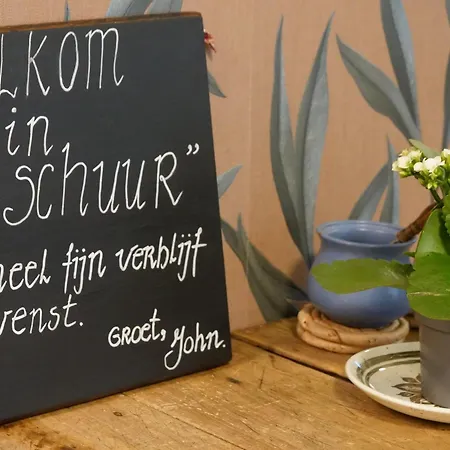 LKOM
in
SCHUUR"
heel fijn verblijf
wenst.
GROET, John.